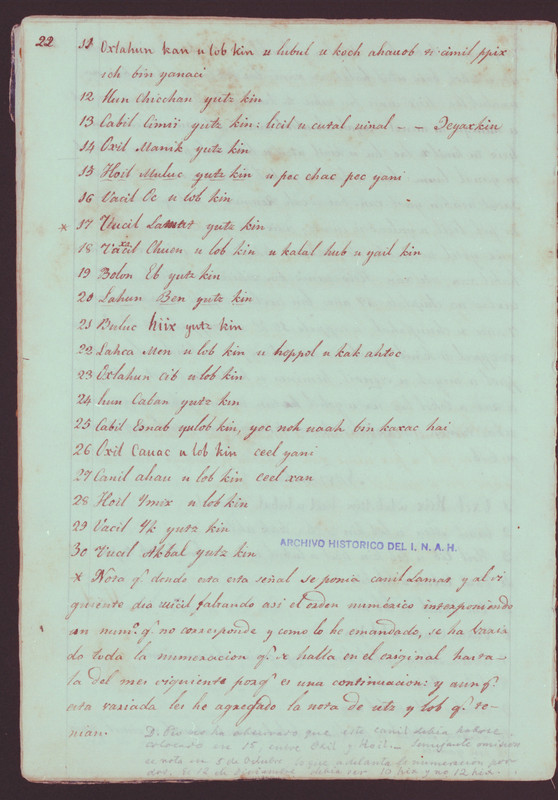 22
11 Oxlahun kan u lob kin u lubul u koch ahauob ti cimil ppix
ich bin yanaci
12 Hun Chicchan yutz kin
13 Cabil Cimii yutz kin: licil u cutal uinal - - Deyaxkin
14 Oxil Manik yutz kin
15 Hoil Muluc yutz kin u pec chac pec yani
16 Vacil Oc u lob kin
* 17 Vucil Lamat yutz kin
18 Vaxacil Chuen u lob kin u kalal hub u yail kin
19 Bolon Eb yutz kin
20 Lahun Ben yutz kin
21 Buluc hiix yutz kin
22 Lahca Men u lob kin u hoppol u kak ahtoc
23 Oxlahun cib u lob kin
24 hun Caban yutz kin
25 Cabil Esnab yulob kin, yoc noh uaah bin kaxac hai
26 Oxil Cauac u lob kin ceel yani
27 Canil ahau u lob kin ceel xan
28 Hoil Ymix u lob kin
29 Vacil Yk yutz kin
30 Vucil Akbal yutz kin
ARCHIVO HISTORICO DEL I. N. A. H.
* Nota q.e donde esta esta señal se ponia canil Lamat, y al si
guiente dia uucil faltando asi el orden numérico interponiendo
un num.o q.e no corresponde y como lo he emandado, se ha varia
do toda la numeracion q.e se halla en el original hasta
la del mes siguiente porq.e es una continuacion: y aunq.e
esta variada les he agregado la nota de utz y lob q.e te-
nian.
D. Pio no ha observado que este canil debia haberse
colocado en 15, entre Oxil y Hoil. Semejante omision
se nota en 5 de Octubre
El 12 de Septiembre debia ser 10 kin y no 12 kin.